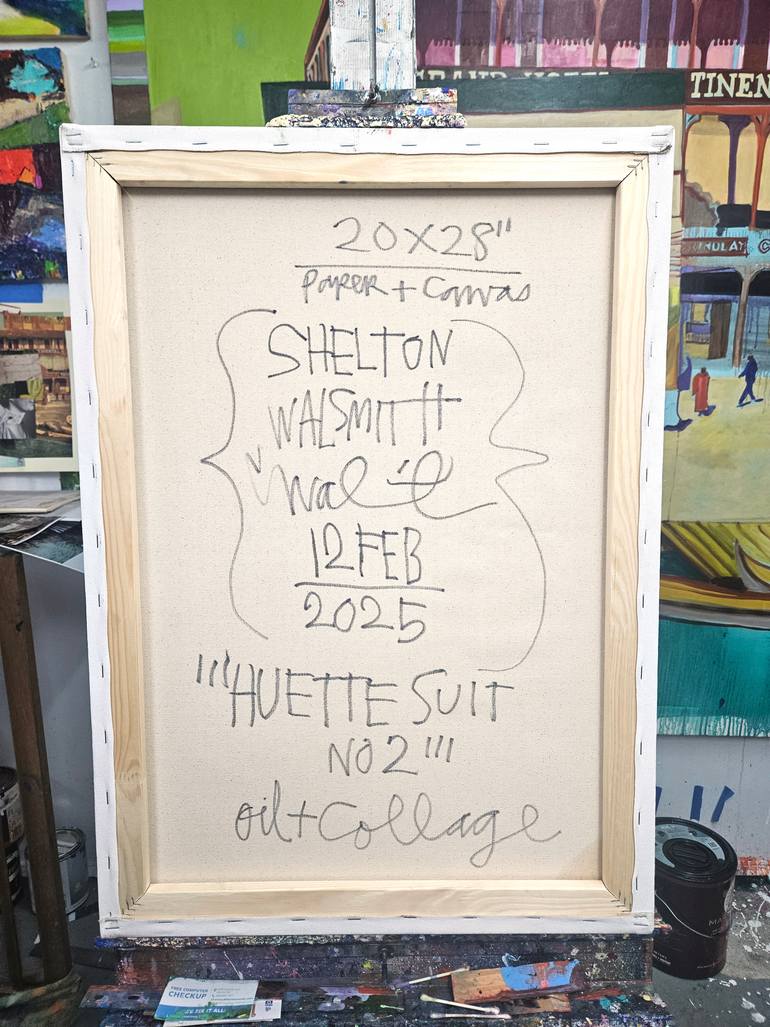 TINEN
20X28"
Paper + Canvas
SHELTON
WALSMITH
12 FEB
2025
"'HUETTE SUIT
NO 2'"
oil + collage
FREE COMPUTER
CHECKUP